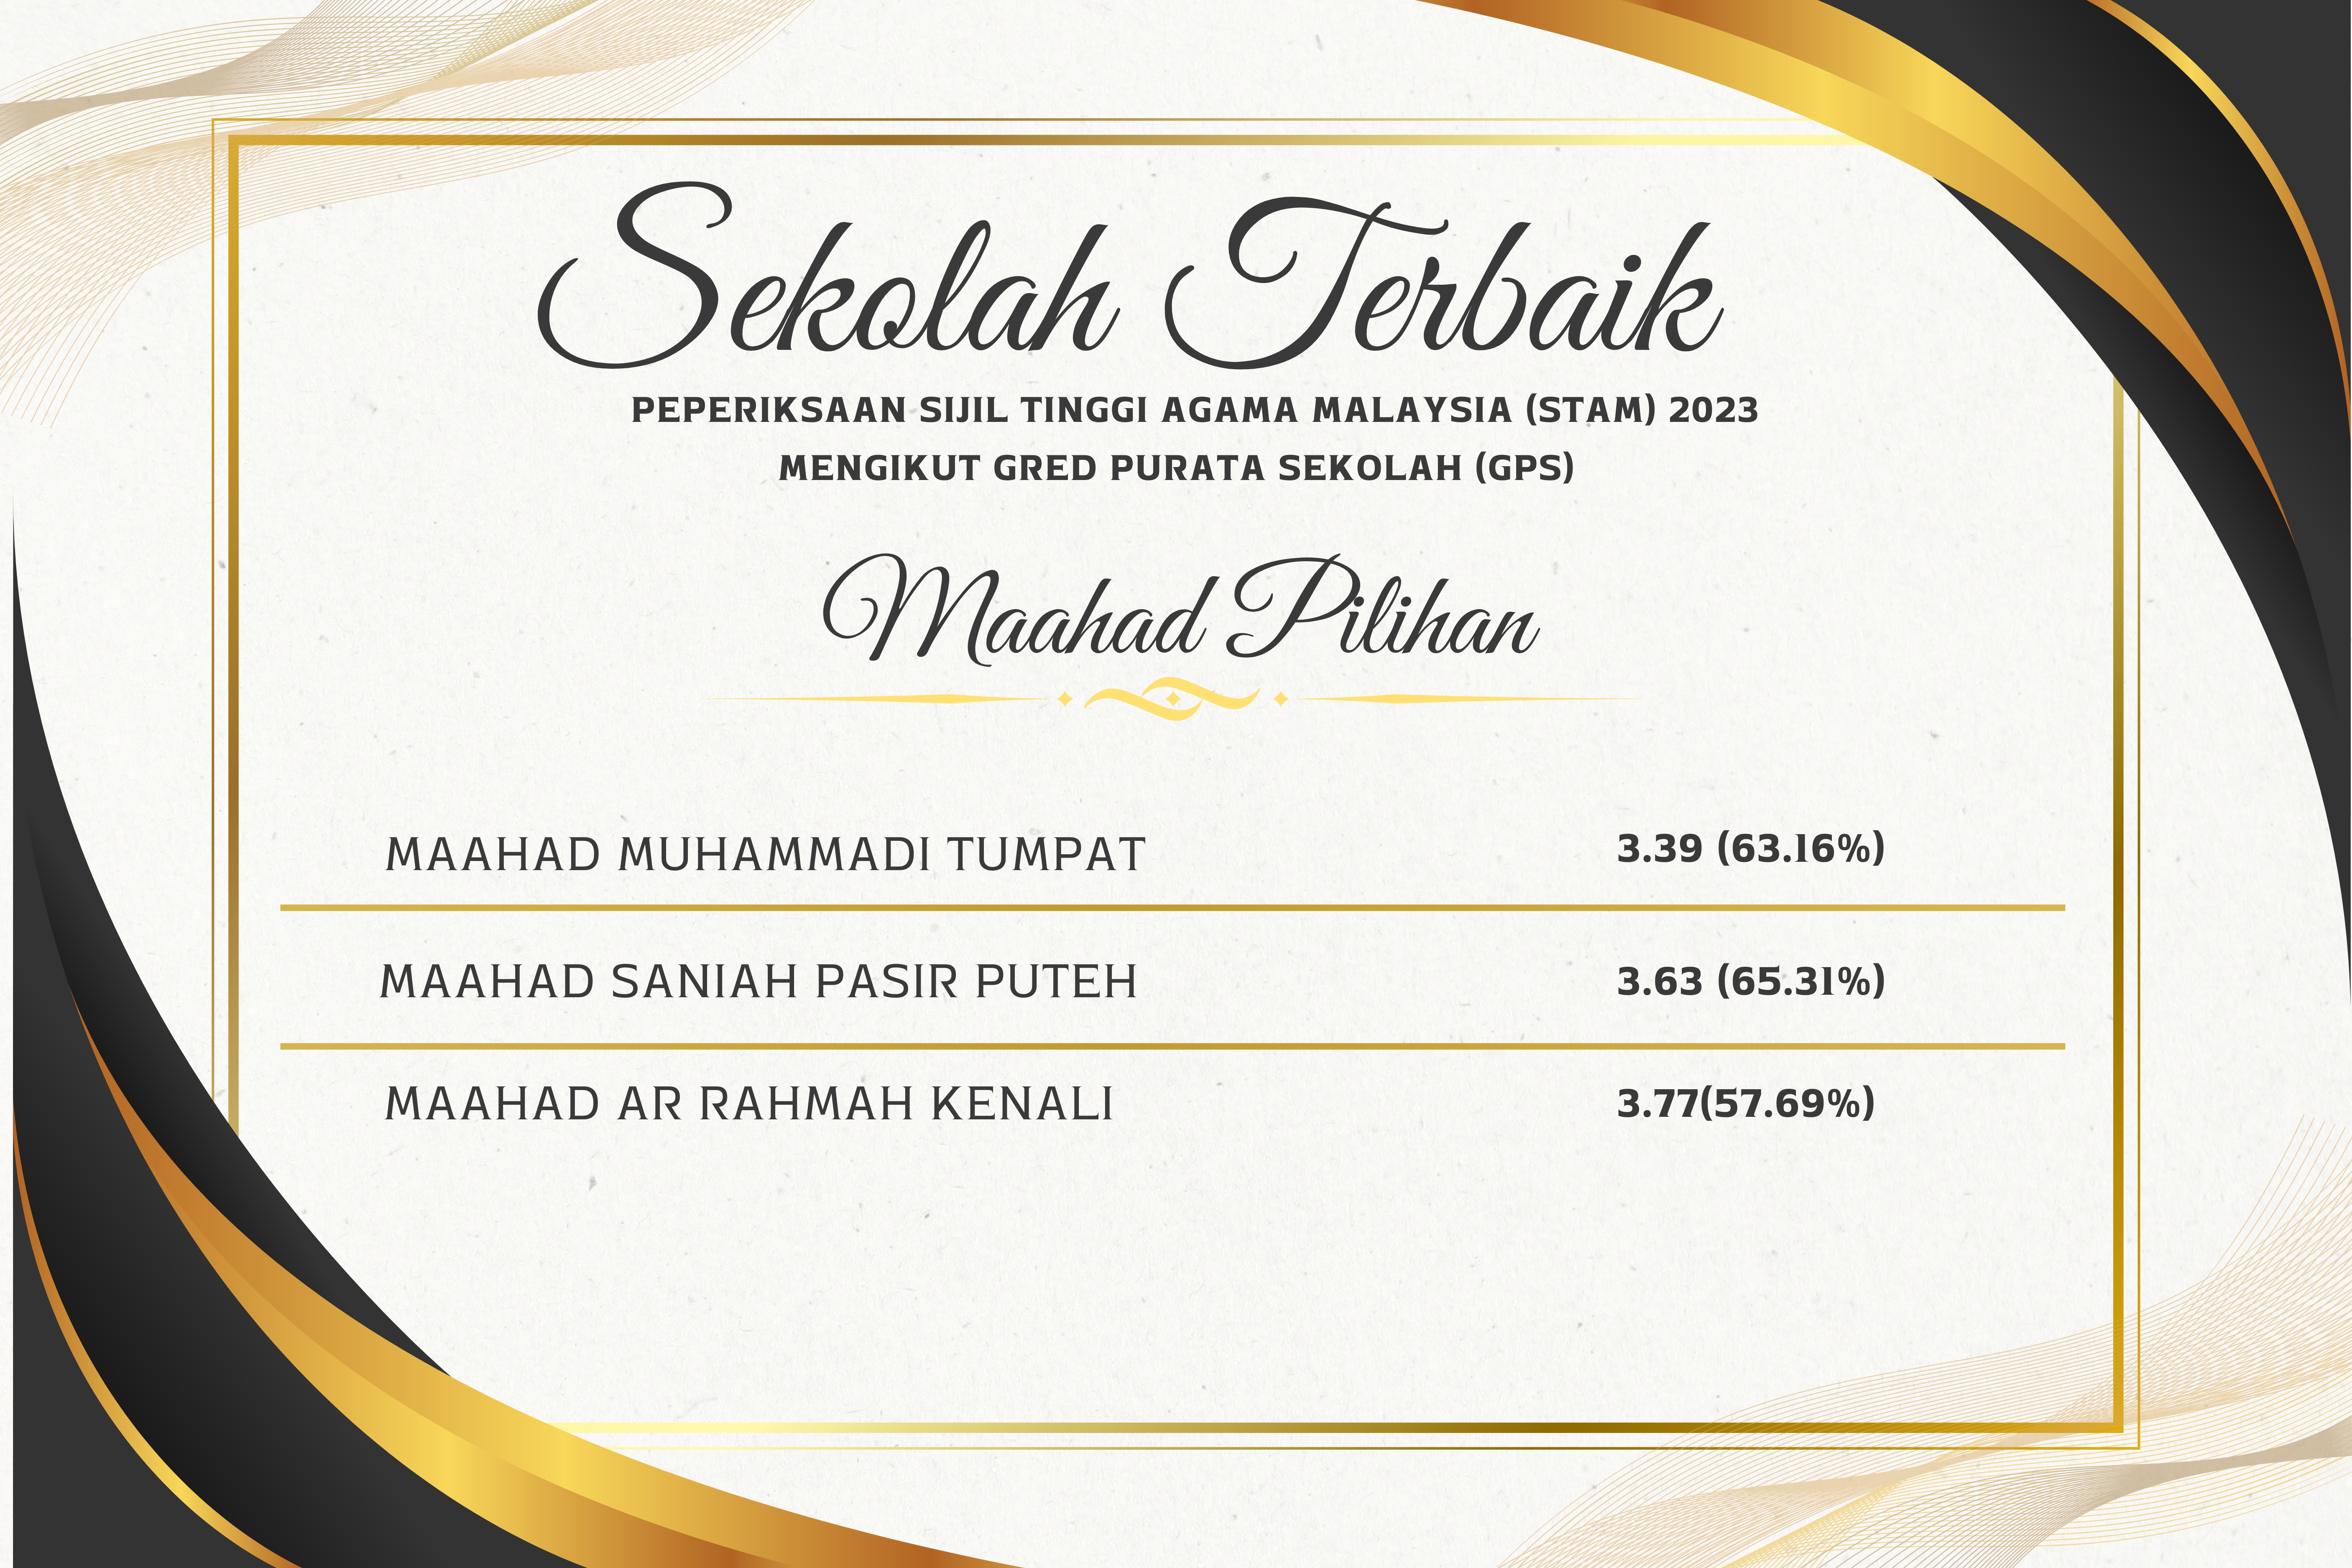 Sekolah Terbaik
PEPERIKSAAN SIJIL TINGGI AGAMA MALAYSIA (STAM) 2023
MENGIKUT GRED PURATA SEKOLAH (GPS)
Maahad Pilihan
MAAHAD MUHAMMADI TUMPAT 3.39 (63.16%)
MAAHAD SANIAH PASIR PUTEH 3.63 (65.31%)
MAAHAD AR RAHMAH KENALI 3.77(57.69%)